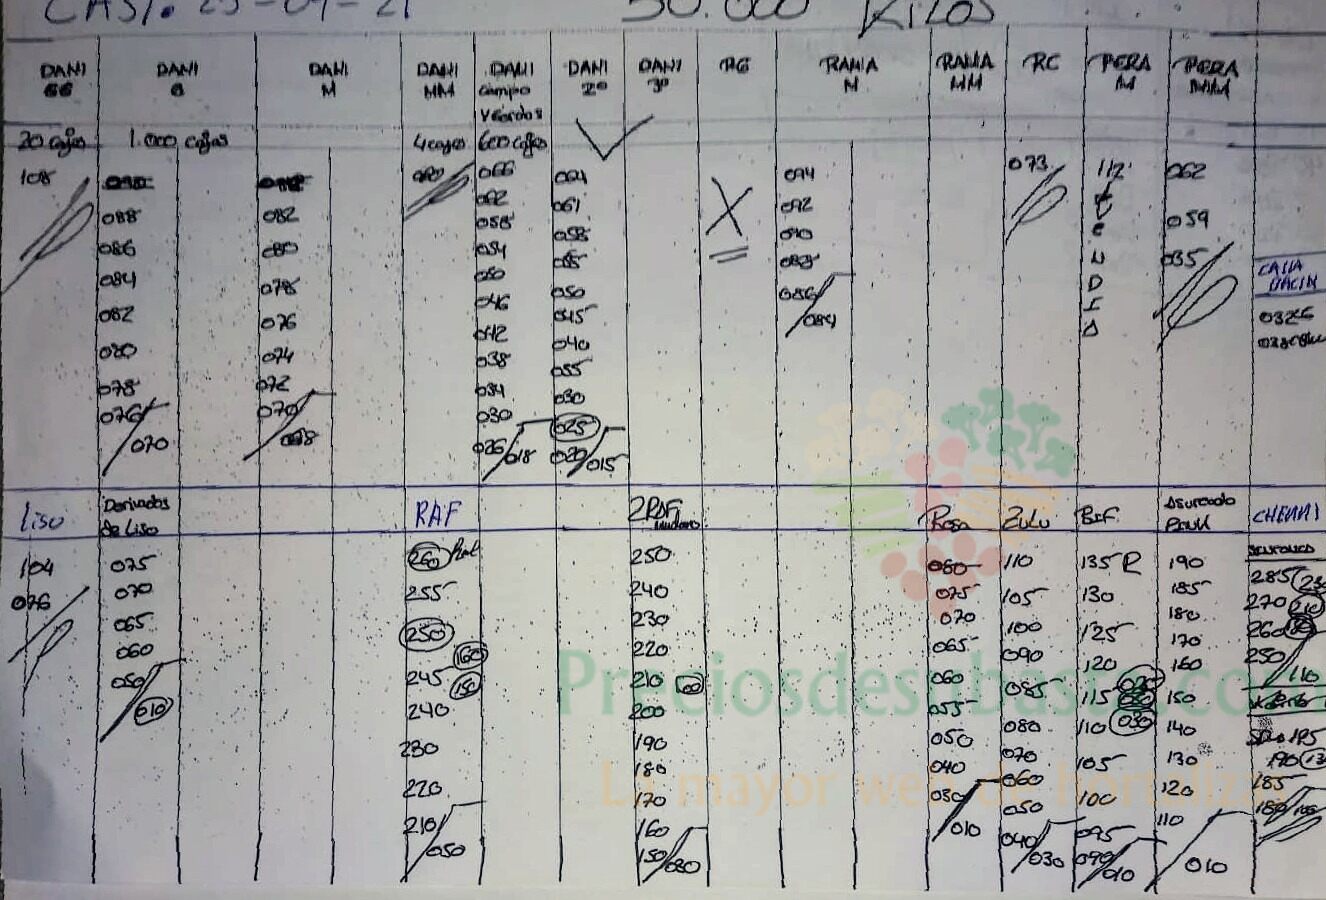 CASI. 23-04-21 50.000 Kilos
DANI GG
DANI G
DANI M
DANI MM
DANI campo verdos
DANI 2º
DANI 3º
RG
RAMA M
RAMA MM
RC
PERA M
PERA MM
20 cajas
1.000 cajas
4 cajas
600 cajas
108
088
086
084
082
080
078
076
070
082
080
078
076
074
072
070
068
066
062
058
054
050
046
042
038
034
030
026
018
064
061
058
055
050
045
040
035
030
025
020
015
094
092
090
088
086
084
073
112
VENDIA
062
059
035
Liso
Derivados de Liso
RAF
2RAF
Rosa
Zulu
Asurcado
104
076
075
070
065
060
050
010
260
255
250
160
245
150
240
230
220
210
050
250
240
230
220
210
200
190
180
170
160
150
080
080
075
070
065
060
055
050
040
030
010
110
105
100
090
085
080
070
060
050
040
030
135 R
130
125
120
115
110
030
105
100
095
090
010
190
185
180
170
160
150
140
130
120
110
010
285
270
210
260
250
110
195
190
185
180
Preciosdesubasta.com
La mayor web de hortaliza